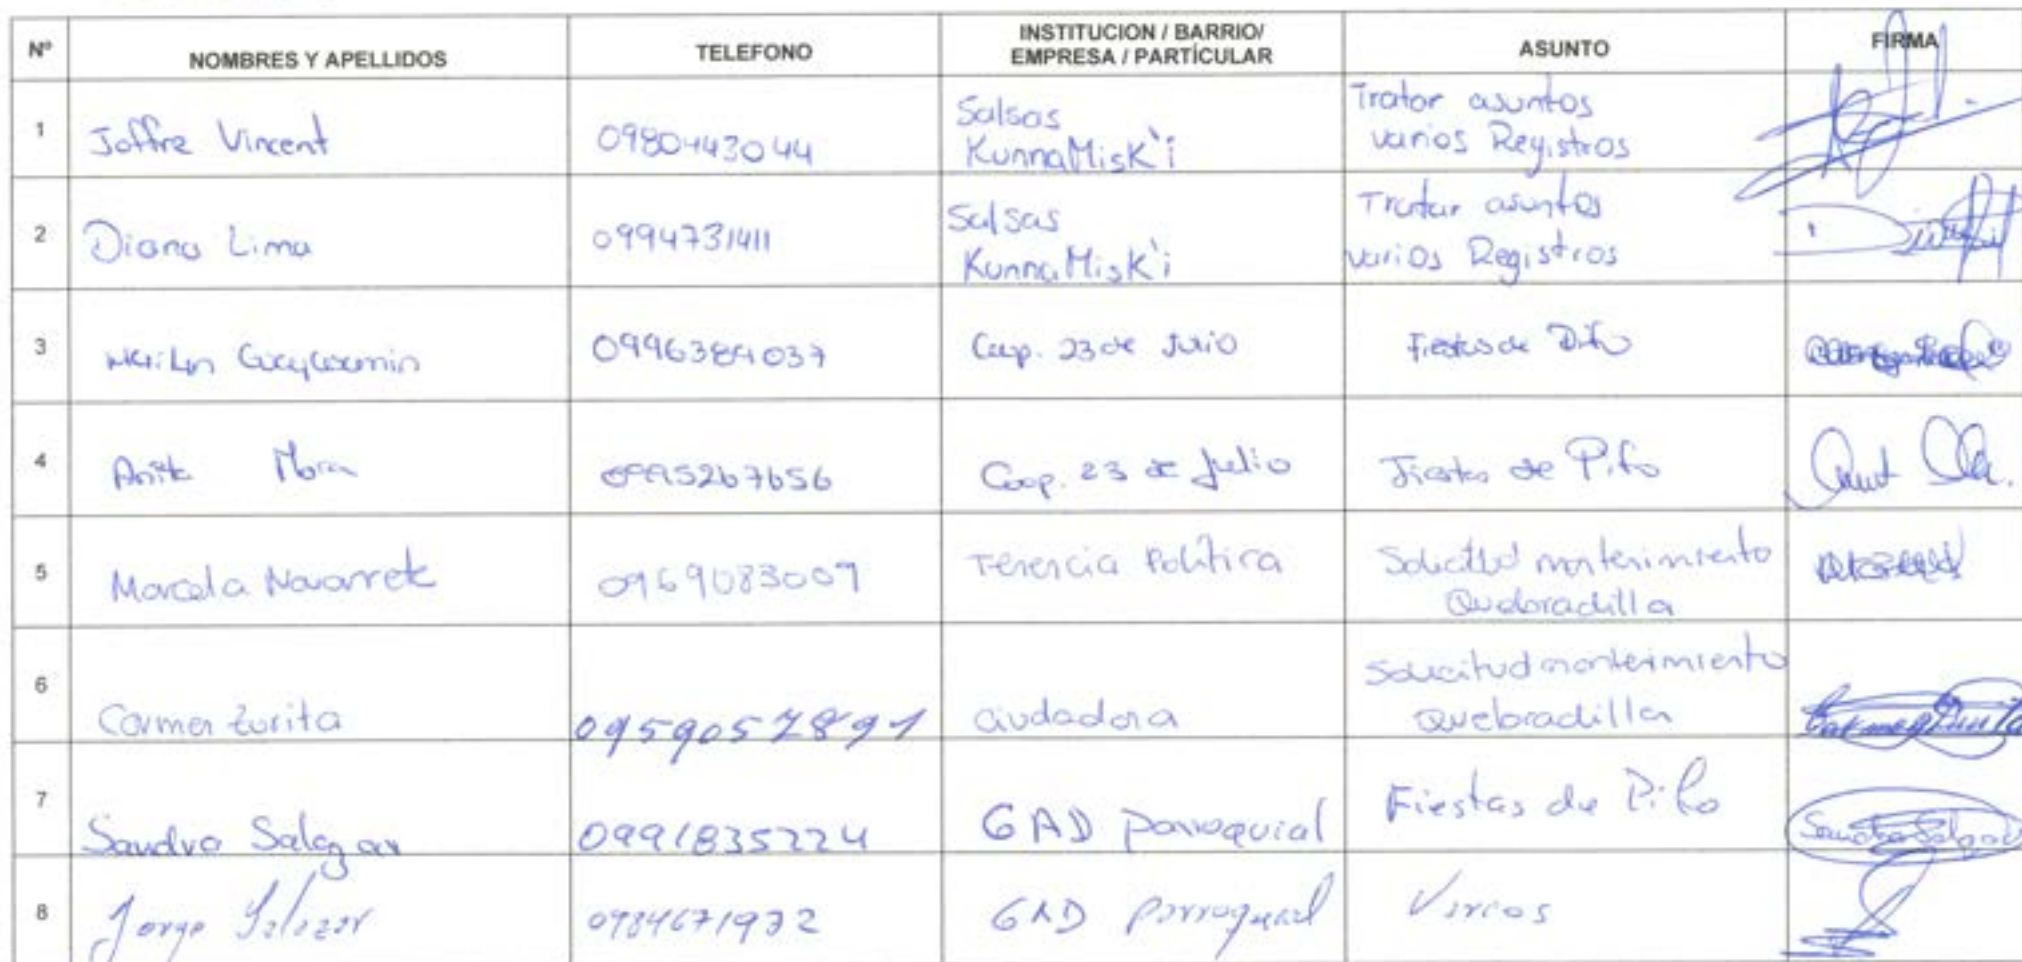 Nº NOMBRES Y APELLIDOS TELEFONO INSTITUCION / BARRIO/ EMPRESA / PARTÍCULAR ASUNTO FIRMA
1 Joffre Vincent 0980443044 Salsas KunnaMisk'i Tratar asuntos varios Registros
2 Diana Lima 0994731411 Salsas KunnaMisk'i Tratar asuntos varios Registros
3 0996384037 Coop. 23 de Julio Fiestas de Pifo
4 Anita Mora 0995267656 Coop. 23 de Julio Fiestas de Pifo
5 Marcela Navarrete 0969083009 Tenencia Política Solicitud mantenimiento Quebradilla
6 Carmen Zurita 0959057891 Ciudadana Solicitud mantenimiento Quebradilla Carmen Zurita
7 Sandra Salazar 0991835224 GAD Parroquial Fiestas de Pifo Sandra Salazar
8 Jorge Salazar 0984671932 GAD Parroquial Varios